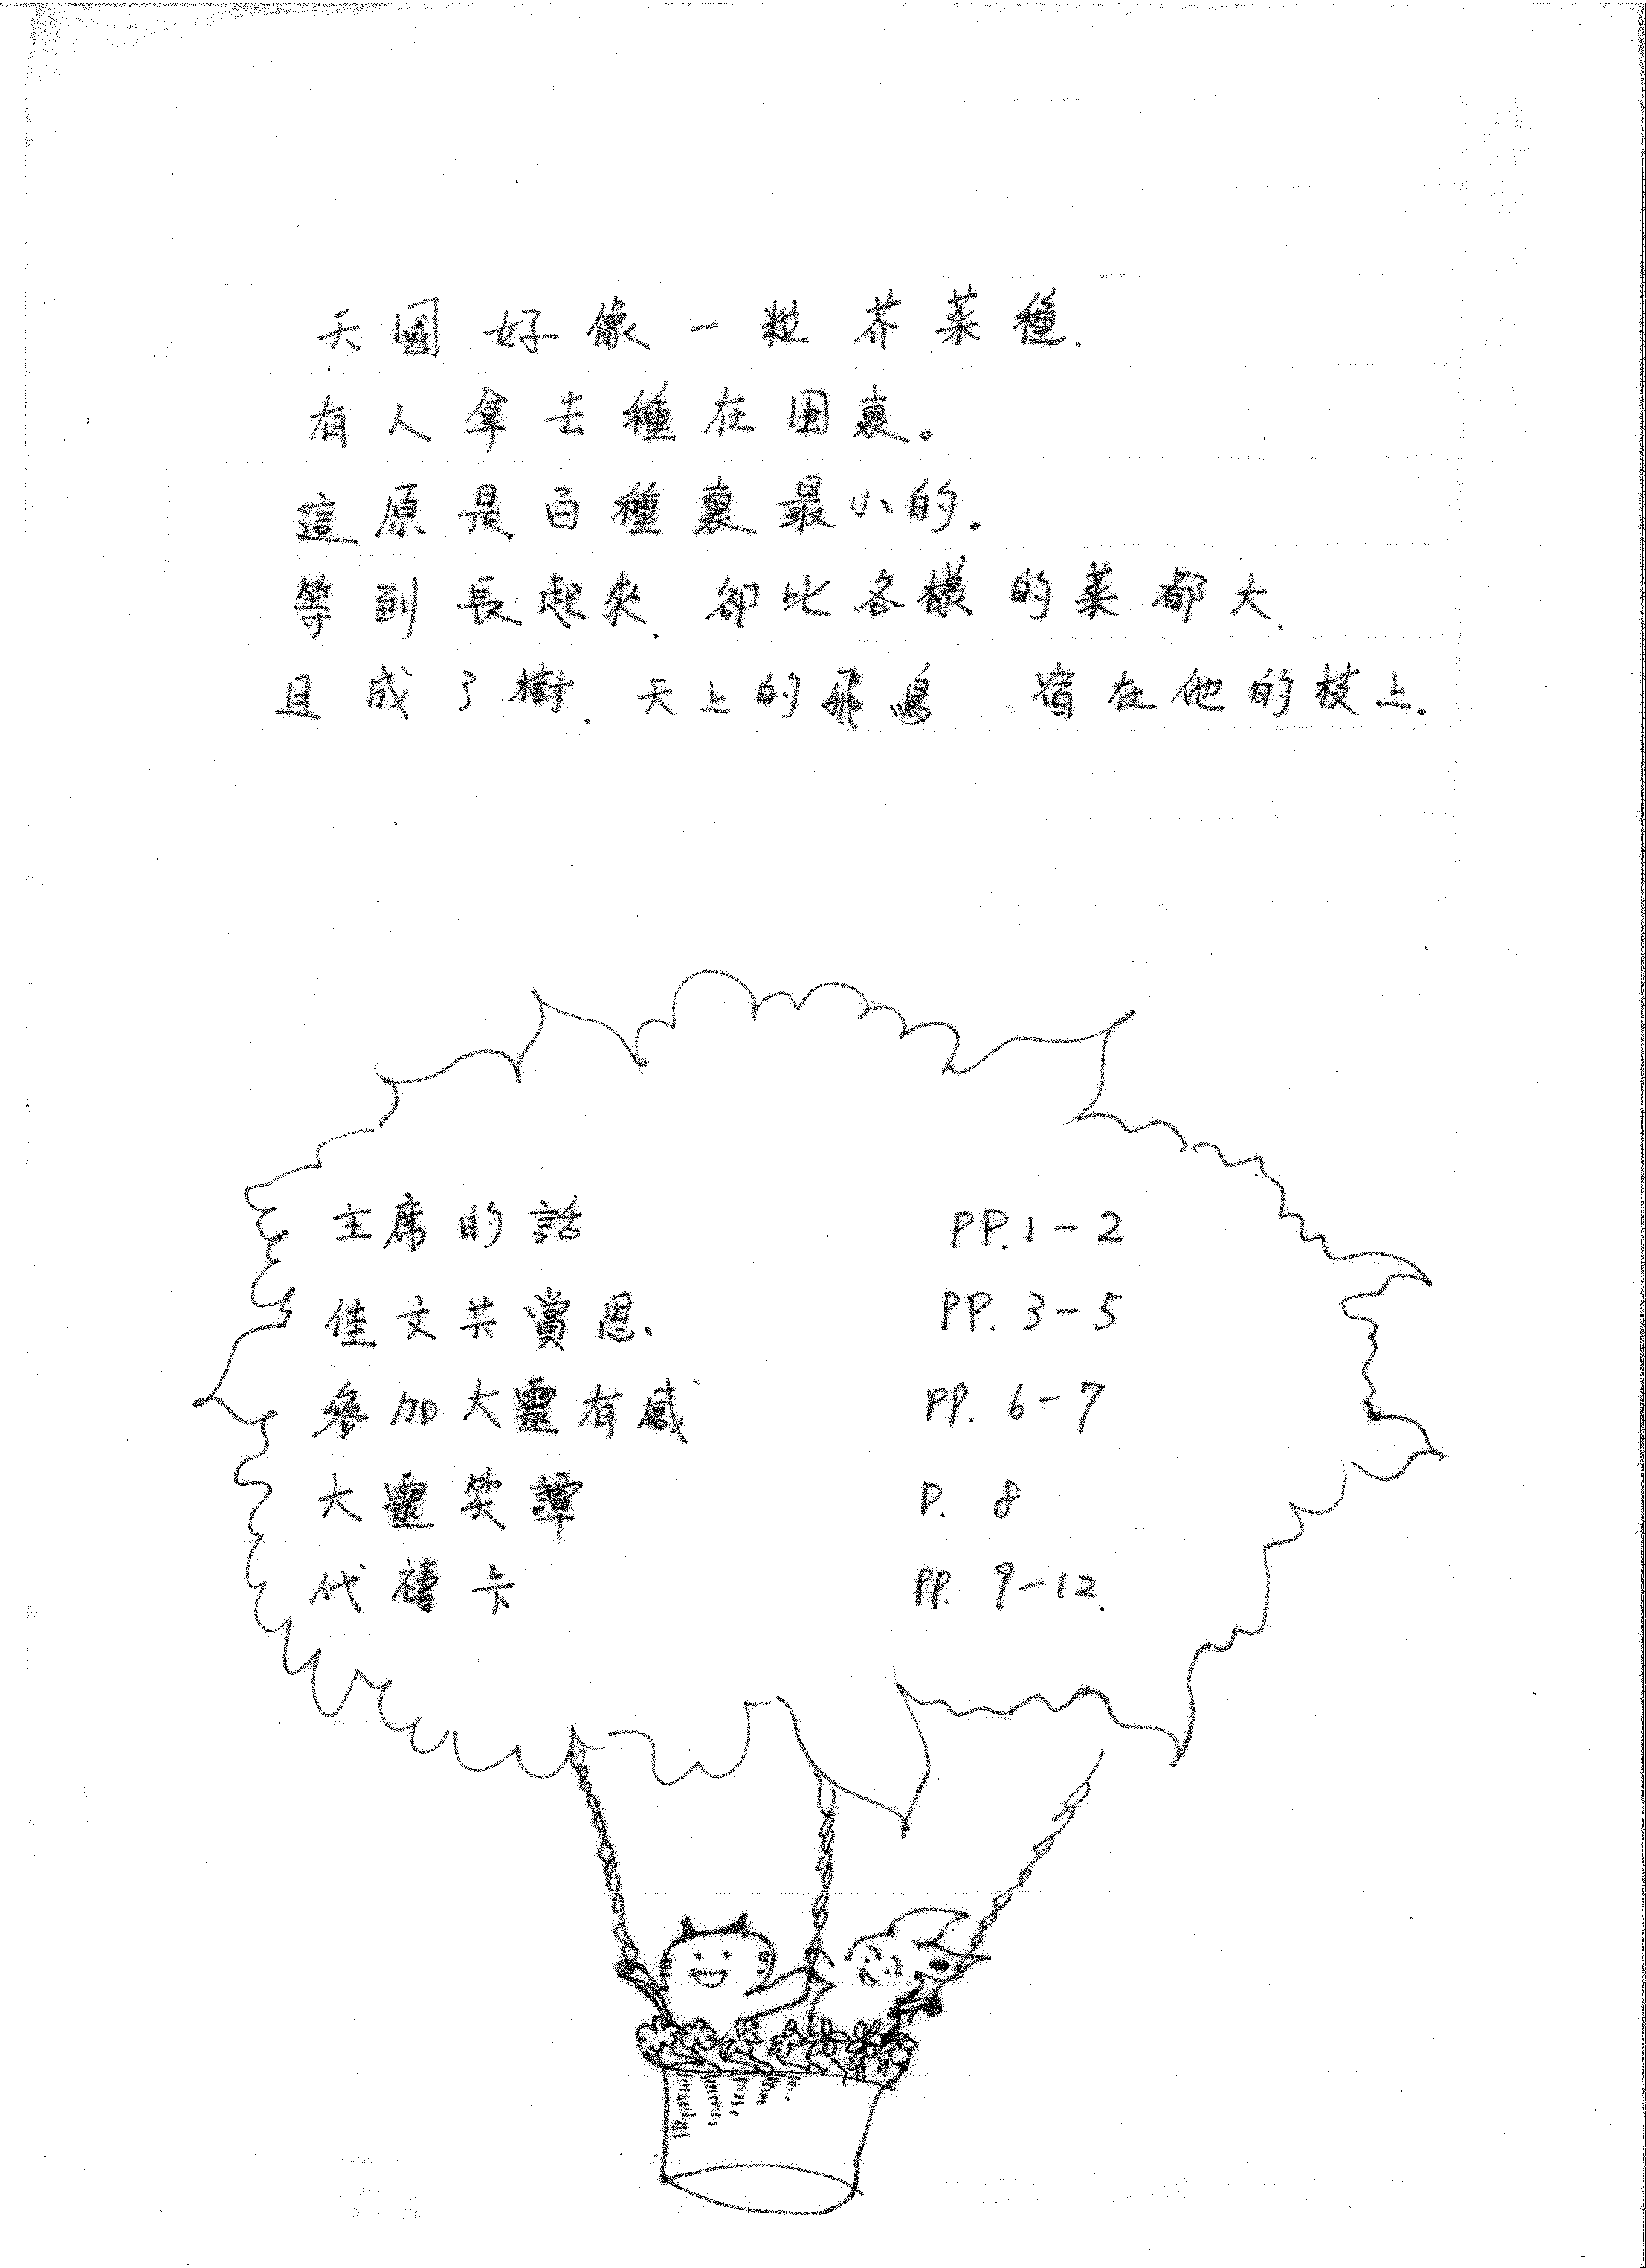 天國好像一粒芥菜種.
有人拿去種在田裏。
這原是百種裏最小的.
等到長起來.卻比各樣的菜都大.
且成了樹.天上的飛鳥 宿在他的枝上.
主席的話 PP.1-2
佳文共賞恩、 PP.3-5
參加大靈有感 PP.6-7
大靈笑譚 P.8
代禱卡 PP.9-12.